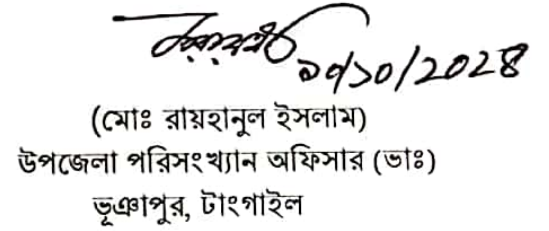 ১০/১০/2028
(মোঃ রায়হানুল ইসলাম)
উপজেলা পরিসংখ্যান অফিসার (ভাঃ)
ভূঞাপুর, টাংগাইল